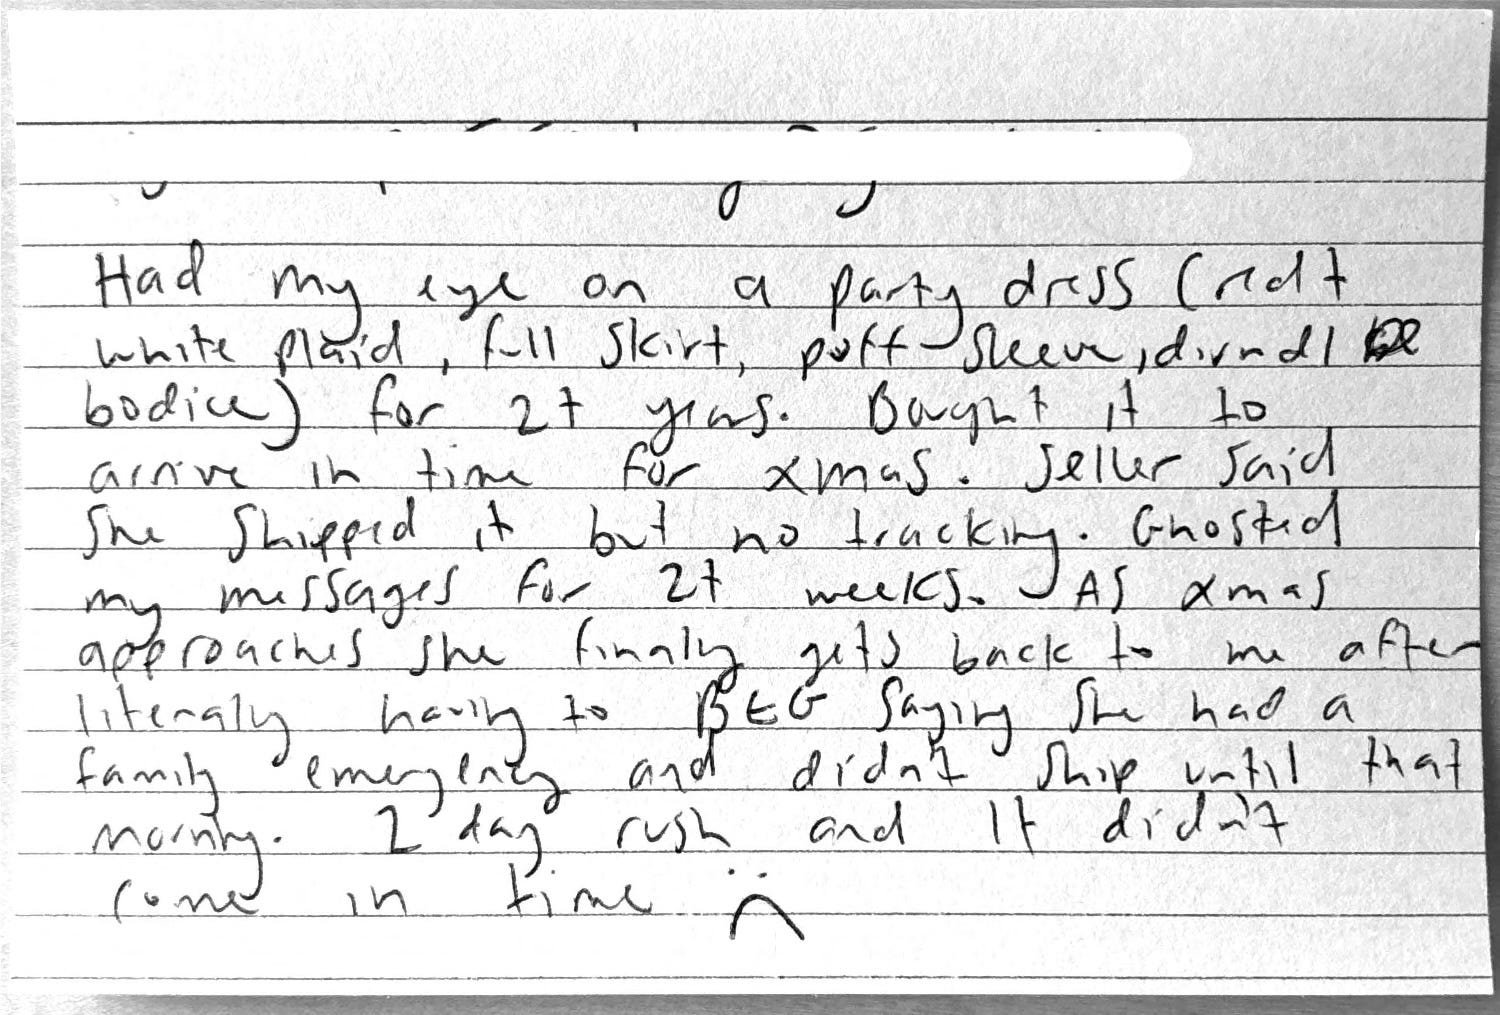 Had my eye on a party dress (red +
white plaid, full skirt, puff-sleeve, dirndl
bodice) for 2+ years. Bought it to
arrive in time for xmas. Seller said
she shipped it but no tracking. Ghosted
my messages for 2+ weeks. As xmas
approaches she finaly gets back to me after
literaly having to BEG saying she had a
family emergency and didn't ship until that
morning. 2 day rush and it didn't
come in time :(